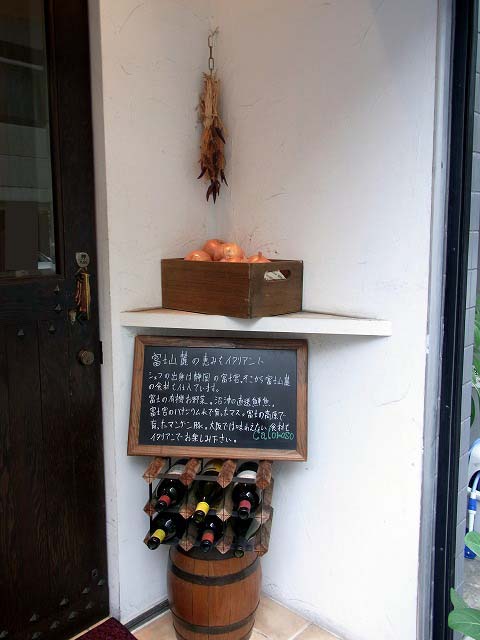 富士山麓の恵みをイタリアント
シェフの出身は静岡の富士宮。そこから富士山麓
の食材を仕入れています。
富士の有機お野菜。沼津の直送鮮魚。
富士宮のバナジウム水で育ったマス。富士の高原で
育ったマンガン豚。大阪では味わえない食材を
イタリアンでお楽しみ下さい。
Caloroso